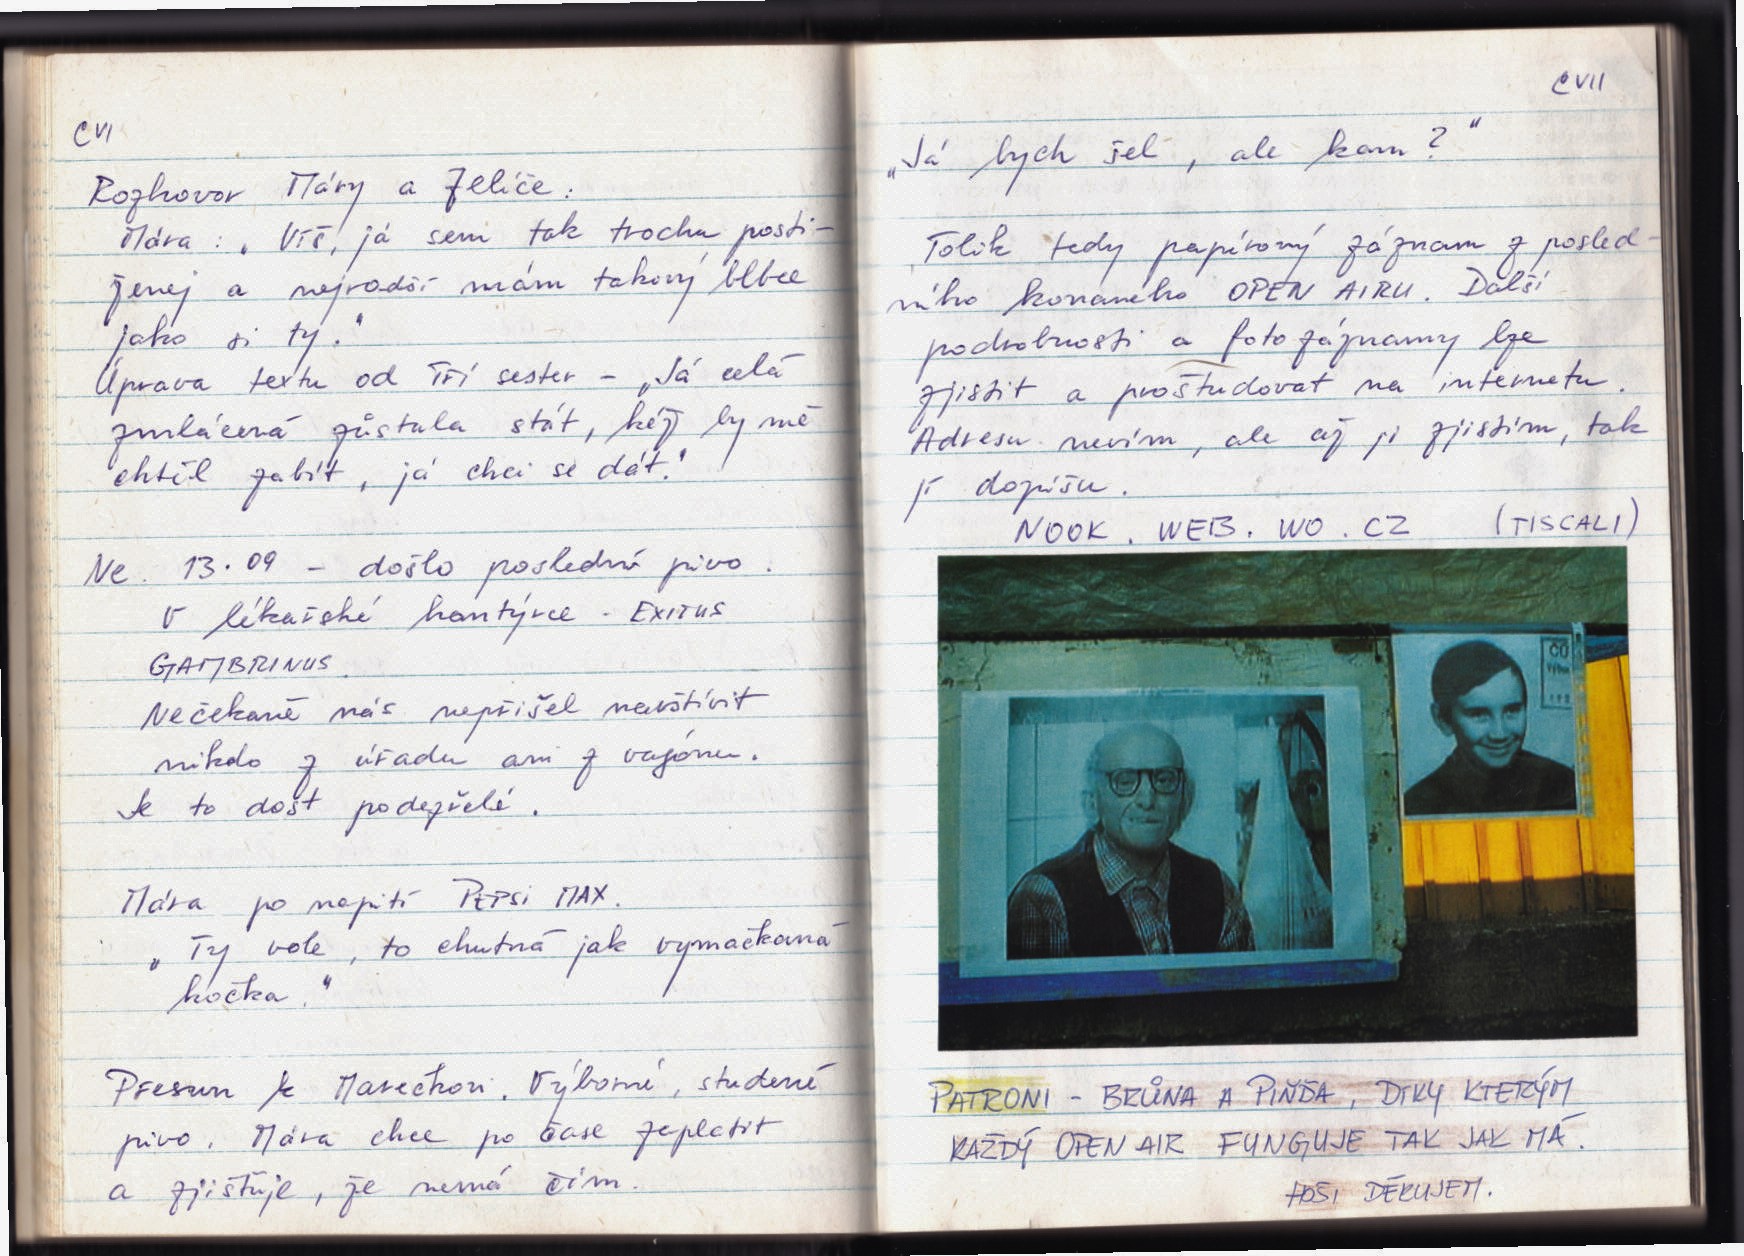 CVI
Rozhovor Máry a Želiče:
Mára: „Víš, já sem tak trochu posti-
ženej a nejradši mám takový blbce
jako si ty."
Úprava textu od Tří sester – „Já celá
zmlácená zůstala stát, kéž by mě
chtěl zabít, já chci se dát."
Ne. 13.09 – došlo poslední pivo.
V lékařské hantýrce - EXITUS
GAMBRINUS.
Nečekaně nás nepřišel navštívit
nikdo z úřadu ani z vagónu.
Je to dost podezřelé.
Mára po napití PEPSI MAX.
„Ty vole, to chutná jak vymačkaná
kočka."
Přesun k Marečkovi. Výborné, studené
pivo. Mára chce po čase zaplatit
a zjišťuje, že nemá čím.
CVII
„Já bych šel, ale kam?"
Tolik tedy papírový záznam z posled-
ního konaného OPEN AIRU. Další
podrobnosti a foto záznamy lze
zjistit a proštudovat na internetu.
Adresu nevím, ale až ji zjistím, tak
jí dopíšu.
NOOK.WEB.WO.CZ (TISCALI)
PATRONI - BRŮNA A PIŇĎA, DÍKY KTERÝM
KAŽDÝ OPEN AIR FUNGUJE TAK JAK MÁ.
HOŠI DĚKUJEM.